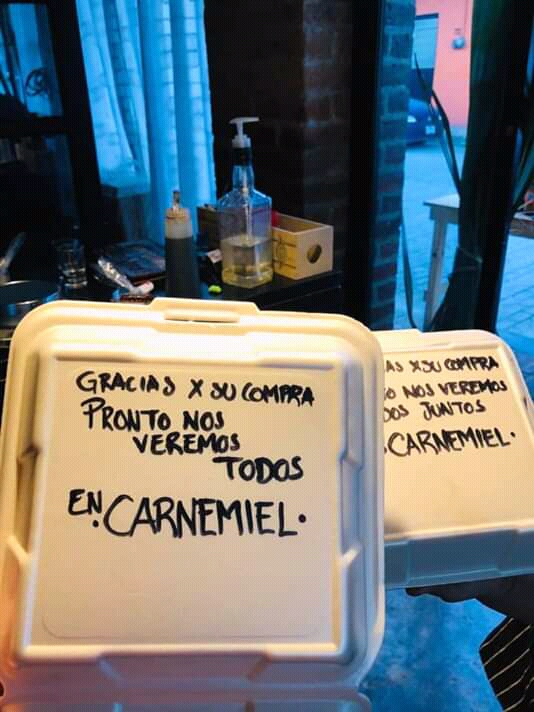 GRACIAS X SU COMPRA
PRONTO NOS
VEREMOS
TODOS
EN
·CARNEMIEL·
X SU COMPRA
NOS VEREMOS
JUNTOS
·CARNEMIEL·